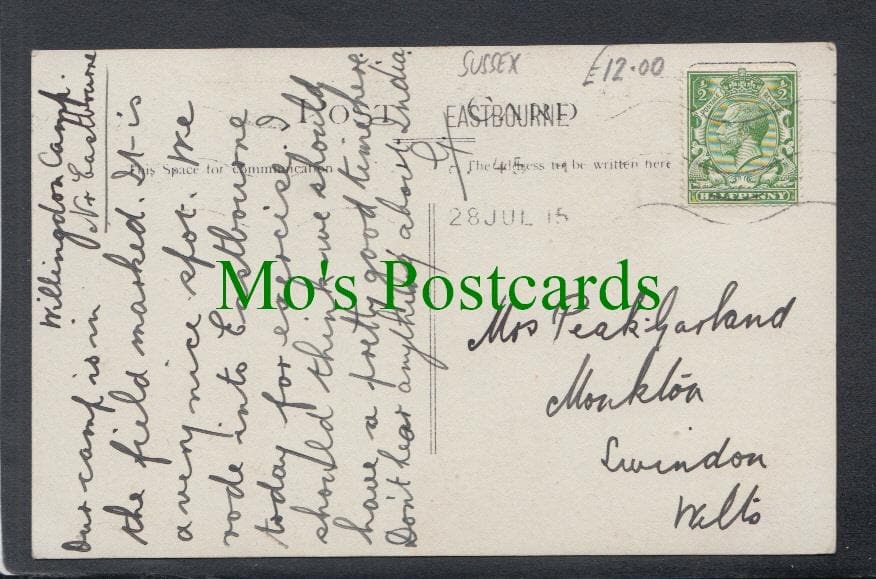 SUSSEX
£12.00
POST CARD
EASTBOURNE
This Space for communication
The address to be written here
45
28 JUL 15
HALFPENNY
Mo's Postcards
Willingdon Camp.
Nr Eastbourne
Our camp is in
the field marked. It is
a very nice spot. We
rode into Eastbourne
today for exercise. I
should think we should
have a pretty good time here.
Don't hear anything about India
Mrs Peak-Garland
Monkton
Swindon
Wilts